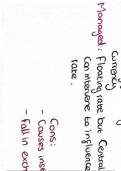 currency
Managed: Floating rate but Central
can intervene to influence
rate.
Cons:
- Causes
- Fall in